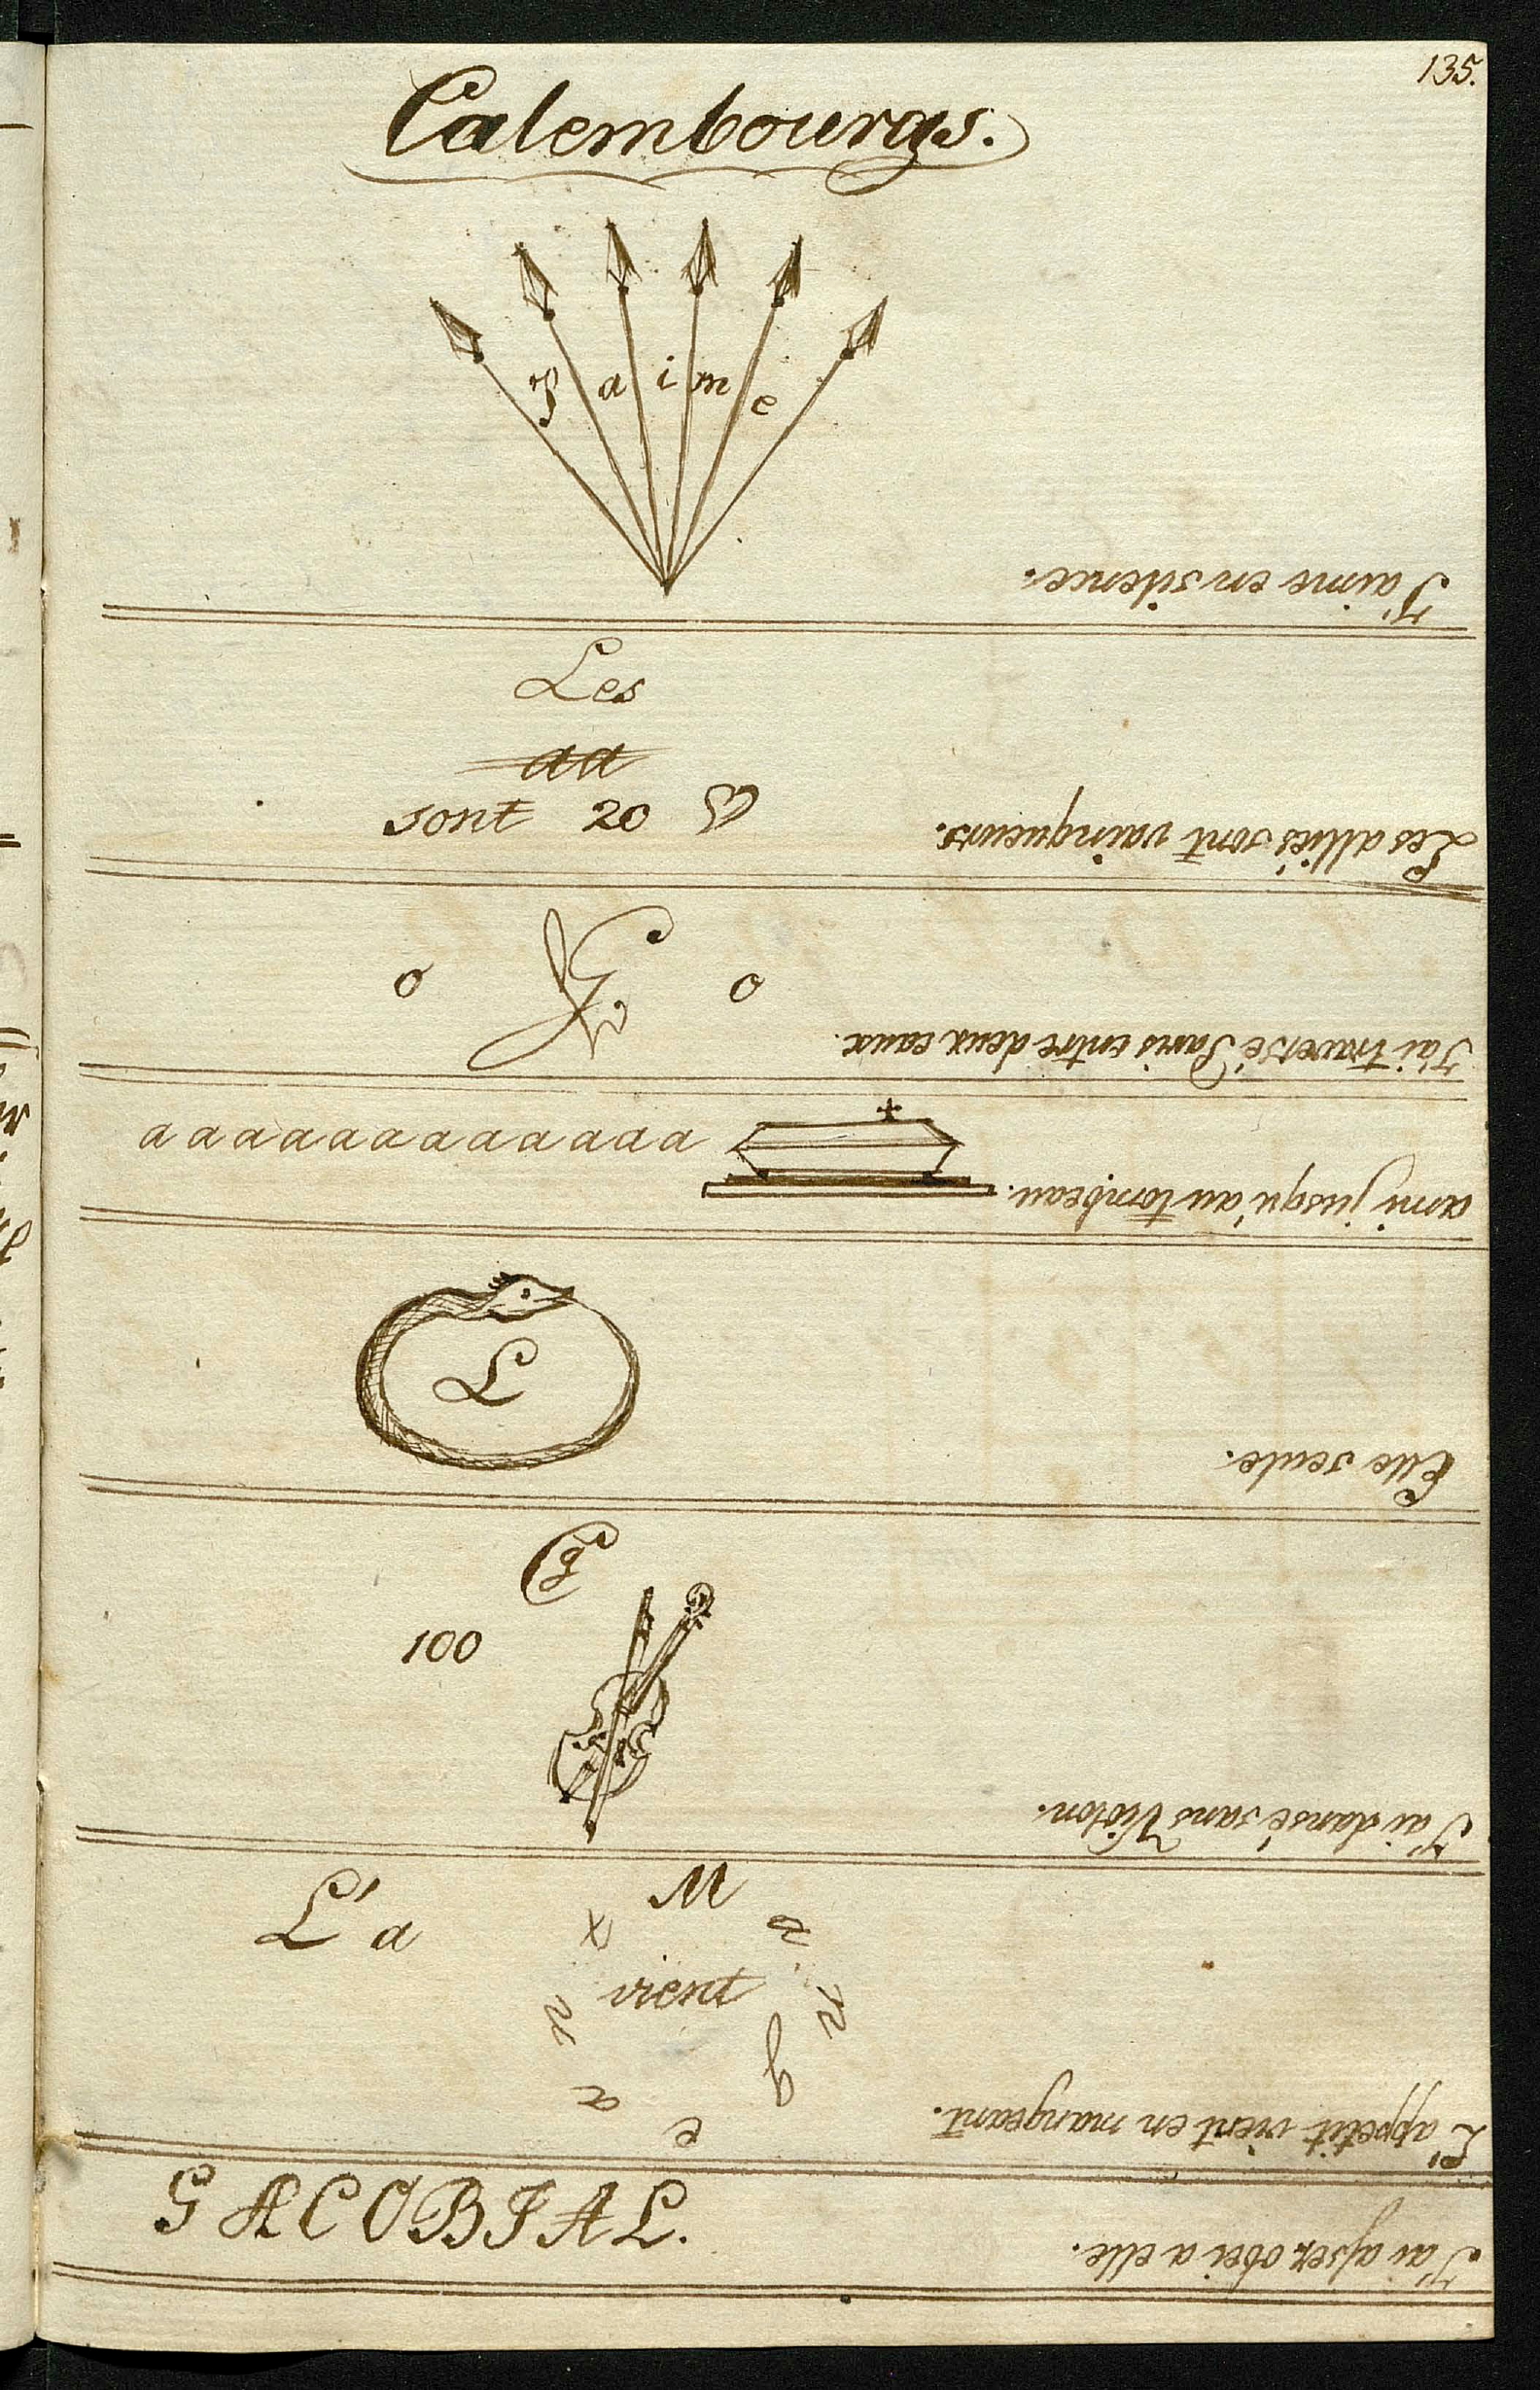 135.
Calembourgs.
J a i m e
J'aime en silence.
Les
aa
sont 20
Les alliés sont vainqueurs.
o G. o
J'ai traversé Paris entre deux eaux.
a a a a a a a a a a a a
ami jusqu'au tombeau.
L
Elle seule.
G
100
J'ai dansé sans Violon.
L'a
M
vient
L'appetit vient en mangeant.
GACOBIAL.
J'ai assez obei a elle.